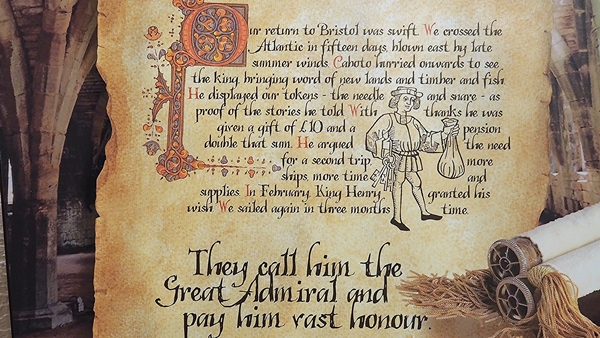 Our return to Bristol was swift. We crossed the
Atlantic in fifteen days, blown east by late
summer winds. Caboto hurried onwards to see
the king, bringing word of new lands and timber and fish.
He displayed our tokens - the needle and snare - as
proof of the stories he told. With thanks he was
given a gift of £10 and a pension
double that sum. He argued the need
for a second trip, more
ships, more time and
supplies. In February, King Henry granted his
wish. We sailed again in three months time.
They call him the
Great Admiral and
pay him vast honour.